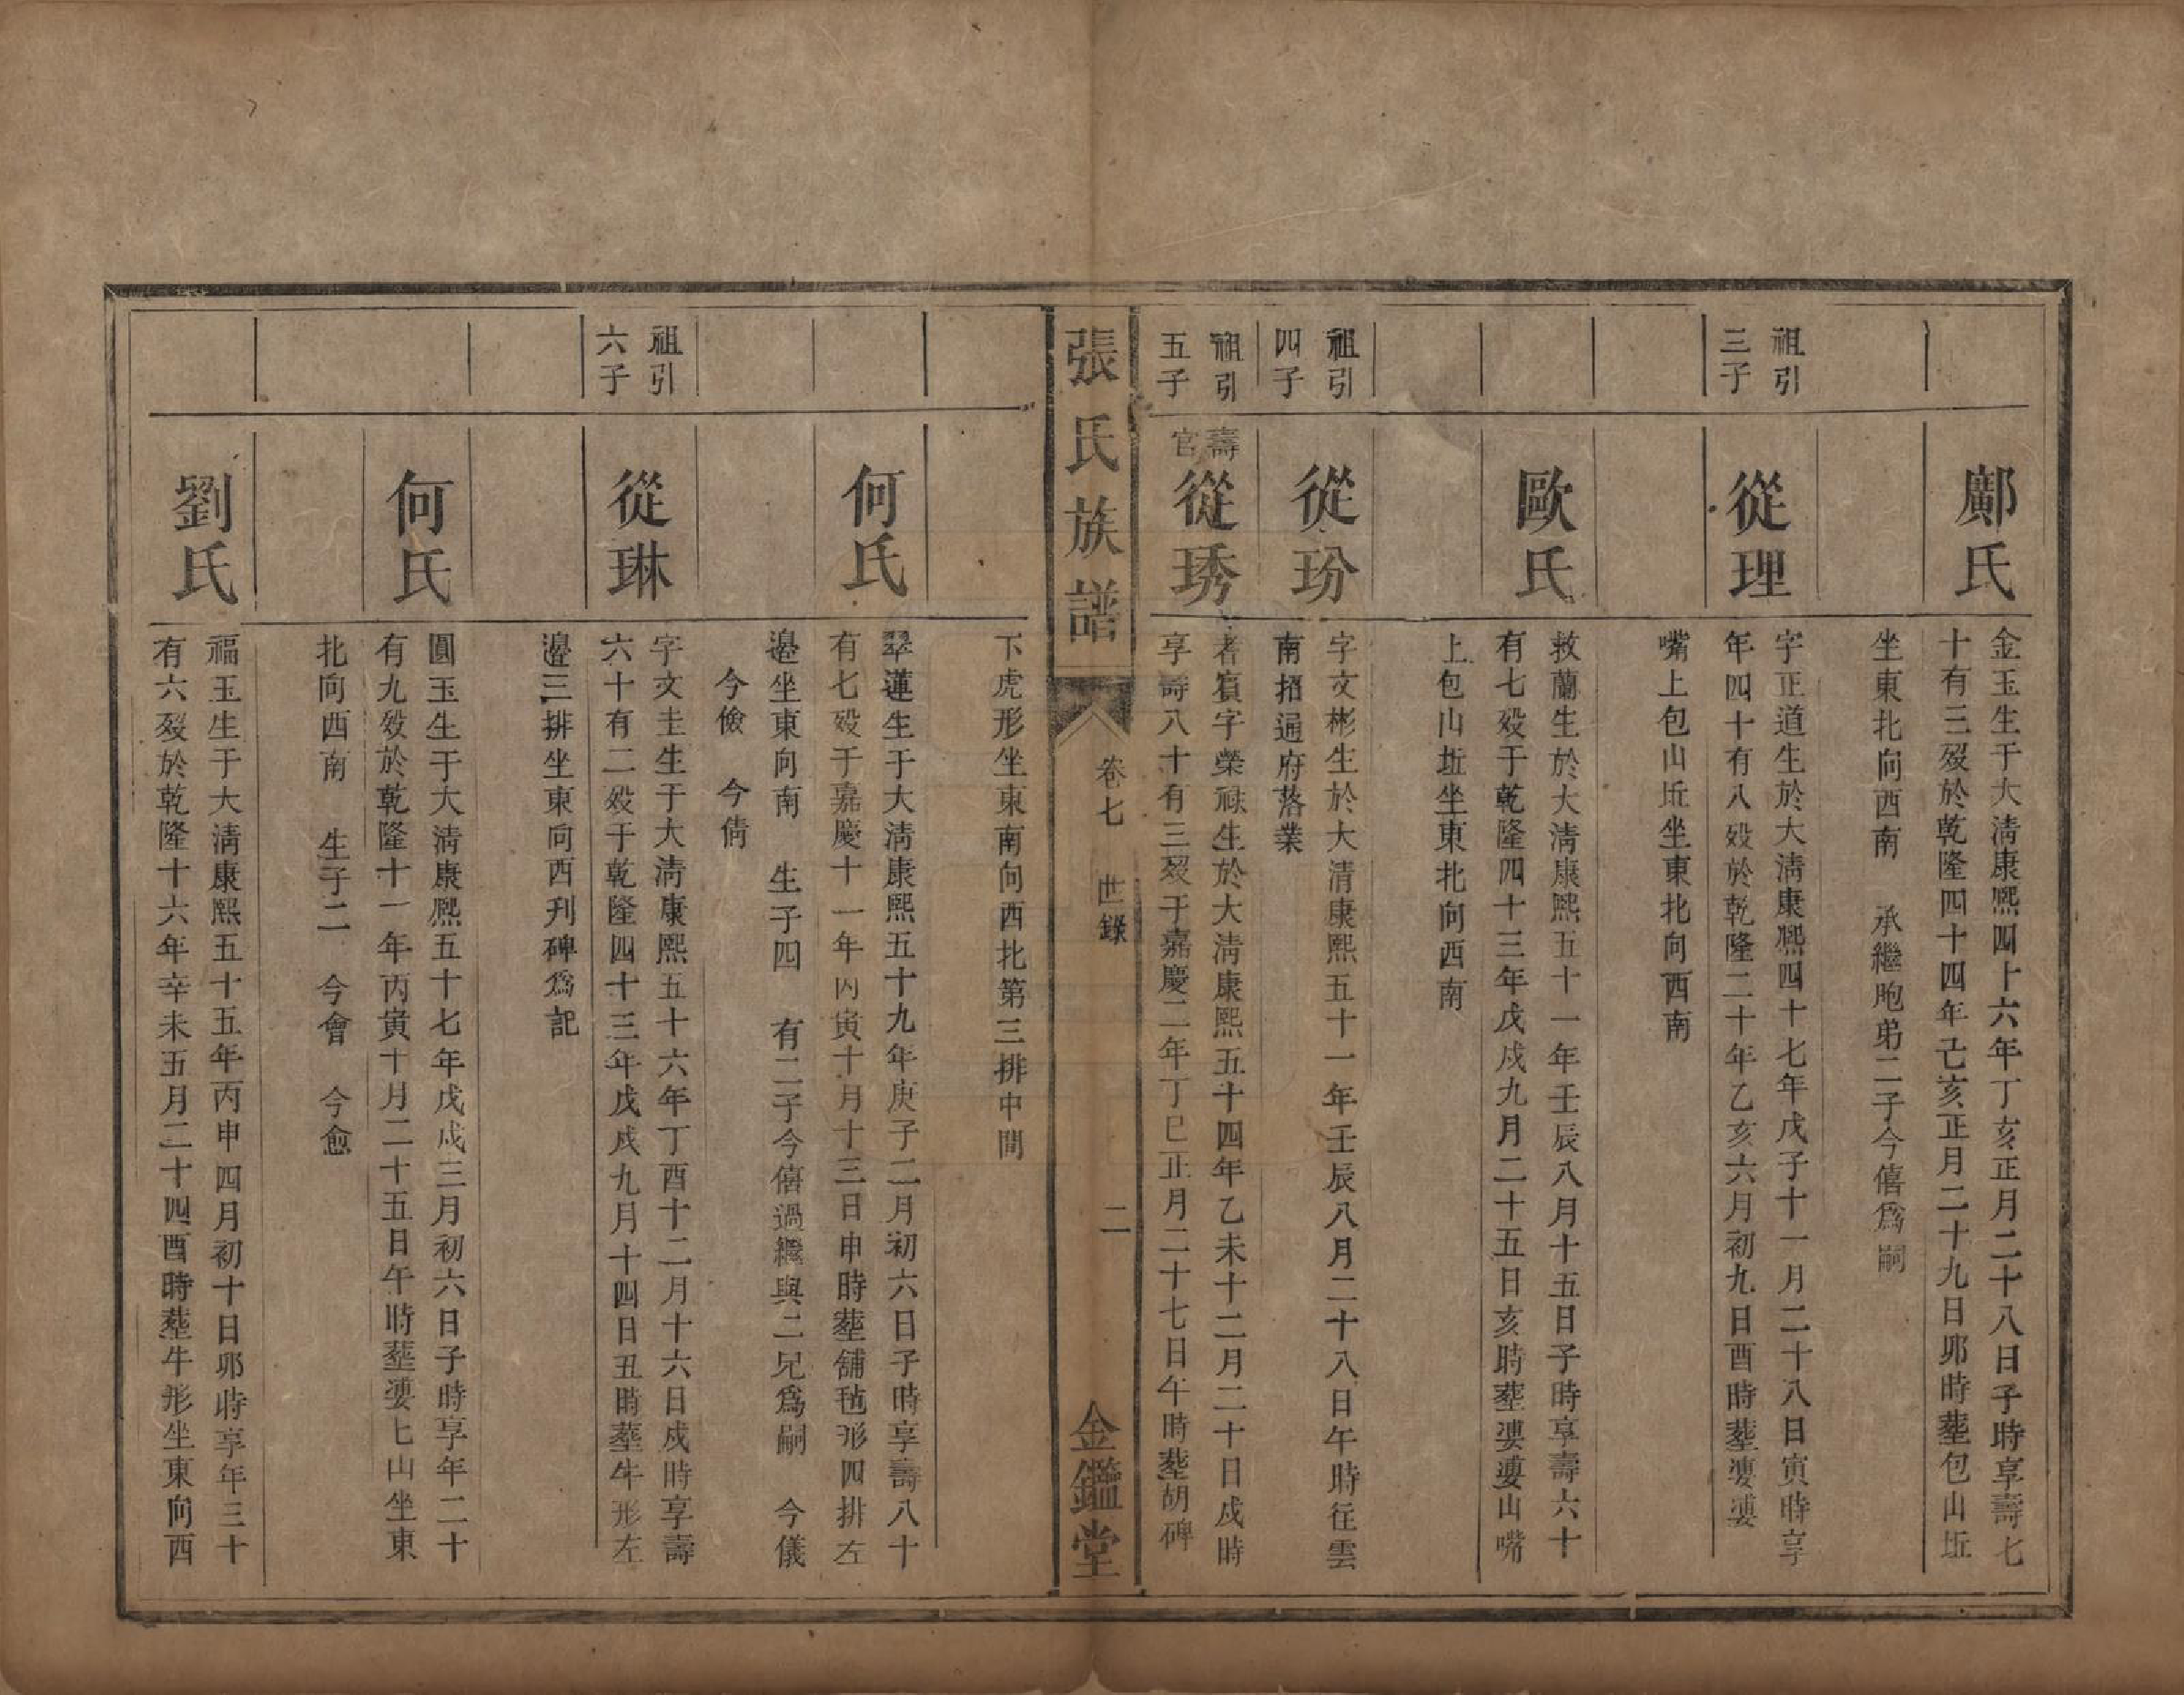 鄺氏
金玉生于大淸康熙四十六年丁亥正月二十八日子時享壽七
十有三歿於乾隆四十四年己亥正月二十九日卯時塟包山坵
坐東北向西南　承繼胞弟二子今僖爲嗣
祖引
三子
從理
字正道生於大淸康熙四十七年戊子十一月二十八日寅時享
年四十有八歿於乾隆二十年乙亥六月初九日酉時塟婆婆
嘴上包山坵坐東北向西南
歐氏
救蘭生於大淸康熙五十一年壬辰八月十五日子時享壽六十
有七歿于乾隆四十三年戊戍九月二十五日亥時塟婆婆山嘴
上包山坵坐東北向西南
祖引
四子
從玢
字文彬生於大清康熙五十一年壬辰八月二十八日午時往雲
南招通府落業
祖引
五子
壽
官
從琇
耆賓字榮祿生於大淸康熙五十四年乙未十二月二十日戍時
享壽八十有三歿于嘉慶二年丁巳正月二十七日午時塟胡碑
張氏族譜
卷七　世錄
二
金鑑堂
下虎形坐東南向西北第三排中間
何氏
翠蓮生于大淸康熙五十九年庚子二月初六日子時享壽八十
有七歿于嘉慶十一年丙寅十月十三日申時塟舖毡形四排左
邉坐東向南　生子四　有二子今僖過繼與二兄爲嗣　今儀
今儉　今倩
祖引
六子
從琳
字文圭生于大淸康熙五十六年丁酉十二月十六日戍時享壽
六十有二歿于乾隆四十三年戊戍九月十四日丑時塟牛形左
邉三排坐東向西刋碑爲記
何氏
圓玉生于大淸康熙五十七年戊戍三月初六日子時享年二十
有九歿於乾隆十一年丙寅十月二十五日午時塟婆七山坐東
北向西南　生子二　今會　今愈
劉氏
福玉生于大淸康熙五十五年丙申四月初十日卯時享年三十
有六歿於乾隆十六年辛未五月二十四酉時塟牛形坐東向西